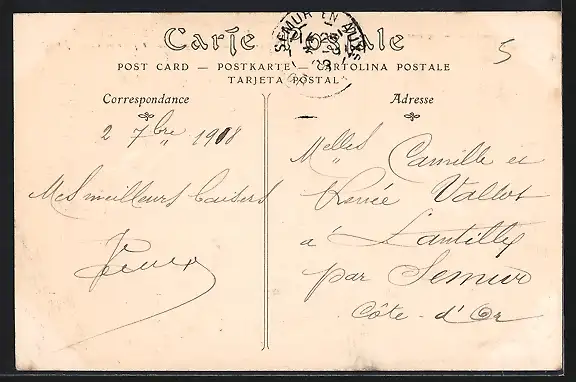 Carte Postale
POST CARD — POSTKARTE — CARTOLINA POSTALE
TARJETA POSTAL
SEMUR EN AUXOIS
5
Correspondance
2 7bre 1908
Mes meilleurs baisers
Adresse
Melles Camille et
Renée Vallot
à Lantilly
par Semur
Côte-d'Or